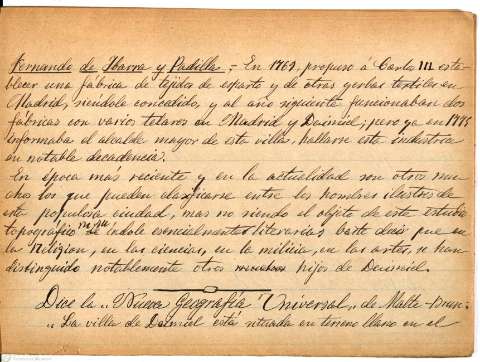 Fernando de Ibarra y Padilla = En 1769 propuso a Carlos III esta-
blecer una fábrica de tejidos de esparto y de otras yerbas textiles en
Madrid, siéndole concedido, y al año siguiente funcionaban dos
fábricas con varios telares en Madrid y Daimiel; pero ya en
informaba el alcalde mayor de esta villa, hallarse esta industria
en notable decadencia.
En época más reciente y en la actualidad son otros mu-
chos los que pueden clasificarse entre los hombres ilustres de
esta populosa ciudad, mas no siendo el objeto de este estudio
topográfico de índole esencialmente literaria, baste decir que en
la Religion, en las ciencias, en la milicia, en las artes, se han
distinguido notablemente otros hijos de Daimiel.
Dice la "Nueva Geografía Universal" de Malte-Brun:
"La villa de Daimiel está situada en terreno llano en el